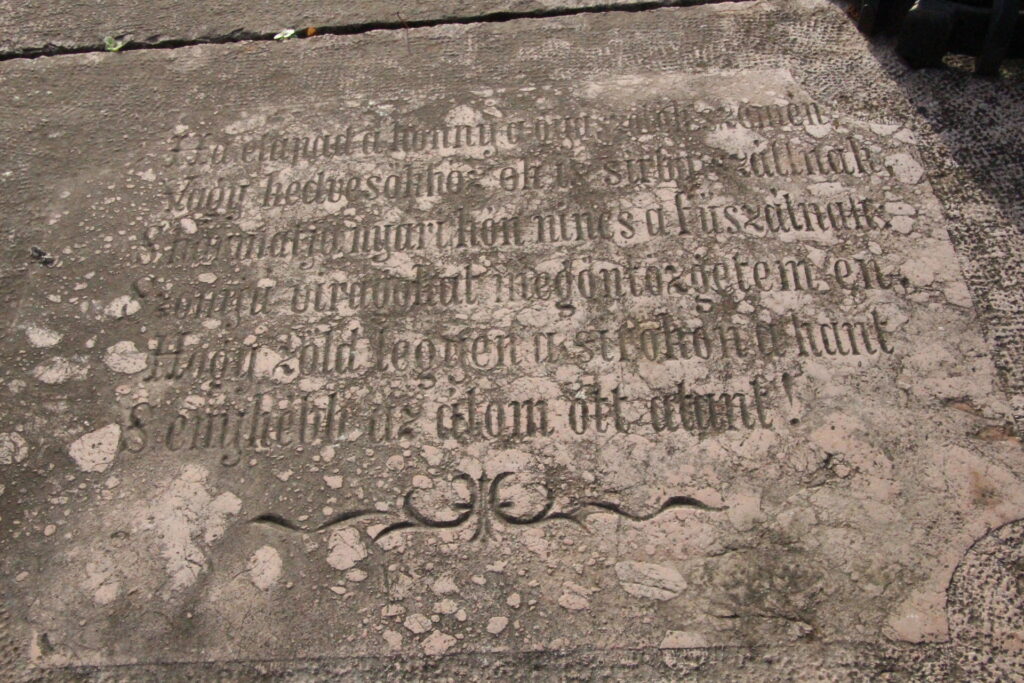 Ha elapad a könny a gyászolók szemén
Vagy kedvesökhöz ők is sirba szállnak,
S harmatja nyári hőn nincs a fűszálnak:
Szomju virágokat megöntözgetem én,
Hogy zöld legyen a sirokon a hant
S enyhébb az álom ott alant!